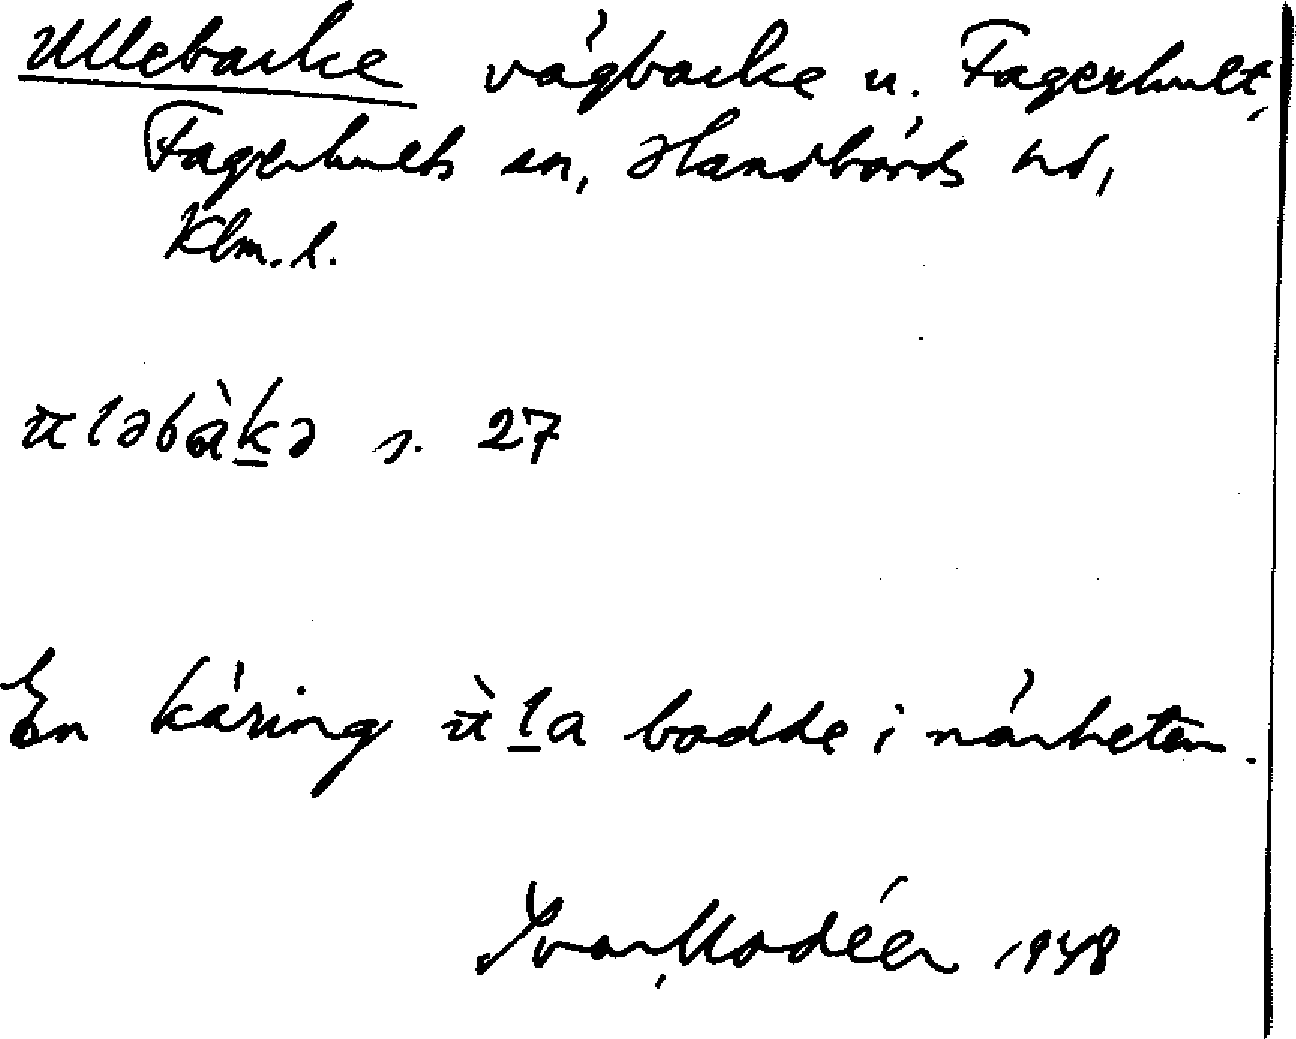 Ullebacke vägbacke u. Fagerhult,
Fagerhults sn, Handbörds hd,
Klm. l.
ɯləbàk̲ə s. 27
En käring ɯ̀l̲a bodde i närheten.
Ivar Modéer 1948